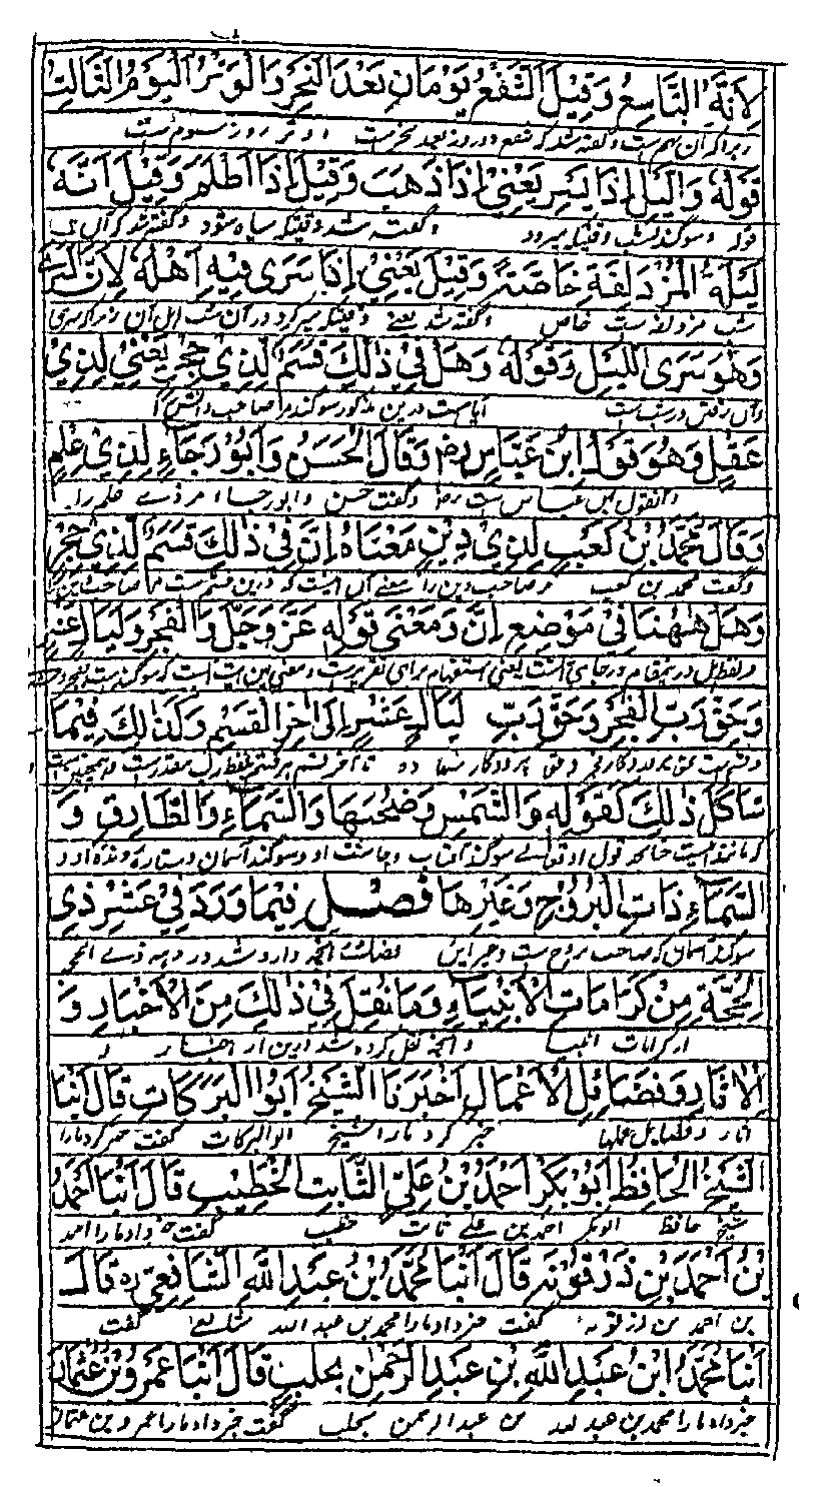 لِاَنَّهُ التَّاسِعُ وَقِيْلَ الشَّفْعُ يَوْمَانِ بَعْدَ النَّحْرِ وَالْوَتْرُ الْيَوْمُ الثَّالِثُ
وزیراکه آن نهم است وگفته شد که شفع دو روز بعد نحرست و وتر روز سوم ست
قَوْلُهٗ وَاللَّيْلِ اِذَا يَسْرِ يَعْنِيْ اِذَا ذَهَبَ وَقِيْلَ اِذَا اَظْلَمَ وَقِيْلَ اَنَّهٗ
قوله وسوگند بشب وقتیکه میرود وگفته شد وقتیکه سیاه شود وگفته شد که آن
لَيْلَةُ الْمُزْدَلِفَةِ خَاصَّةً وَقِيْلَ يَعْنِيْ اِذَا سَرٰى فِيْهِ اَهْلُهٗ لِاَنَّ السُّرٰى
شب مزدلفه است خاص وگفته شد یعنے وقتیکه سیر کرد در آن شب اهل آن زیراکه سری
وَهُوَ سَرَى اللَّيْلِ وَقَوْلُهٗ وَهَلْ فِيْ ذٰلِكَ قَسَمٌ لِّذِيْ حِجْرٍ يَعْنِيْ لِذِيْ
وآن رفتن در شب است آیا هست درین مذکور سوگند مر صاحب دانش را
عَقْلٍ وَهُوَ قَوْلُ ابْنِ عَبَّاسٍ رض وَقَالَ الْحَسَنُ وَاَبُوْ رَجَاءٍ لِذِيْ عِلْمٍ
وآن قول ابن عباس است رض وگفت حسن وابو رجاء مر ذے علم را
وَقَالَ مُحَمَّدُ بْنُ كَعْبٍ لِذِيْ دِيْنٍ مَعْنَاهُ اِنَّ فِيْ ذٰلِكَ قَسَمٌ لِّذِيْ حِجْرٍ
وگفت محمد بن کعب مر صاحب دین را معنے آن اینست که درین قسم ست مر صاحب
وَهَلْ هٰهُنَا فِيْ مَوْضِعِ اِنَّ وَمَعْنٰى قَوْلِهٖ عَزَّ وَجَلَّ وَالْفَجْرِ وَلَيَالٍ عَشْرٍ
ولفظ هل درینمقام در جای ان است یعنی استفهام برای تقریرست ومعنی این است که سوگند ست
وَحَقِّ رَبِّ الْفَجْرِ وَحَقِّ رَبِّ لَيَالٍ عَشْرٍ اِلٰى اٰخِرِ الْقَسَمِ وَكَذٰلِكَ فِيْمَا
بحق پروردگار فجر وحق پروردگار شبها ده تا آخر قسم لفظ رب مقدرست وهمچنین
شَاكَلَ ذٰلِكَ كَقَوْلِهٖ وَالشَّمْسِ وَضُحٰىهَا وَالسَّمَآءِ وَالطَّارِقِ وَ
که مانند اینست چنانچه قول او تعالے سوگند آفتاب وچاشت او وسوگند آسمان وستاره
السَّمَآءِ ذَاتِ الْبُرُوْجِ وَغَيْرِهَا فَصْلٌ فِيْمَا وَرَدَ فِيْ عَشْرِ ذِي
سوگند آسمان که صاحب بروج ست وغیر این فصل ست آنچه وارد شد در دهه ذے الحجه
الْحِجَّةِ مِنْ كَرَامَاتِ الْاَنْبِيَآءِ وَمَا نُقِلَ فِيْ ذٰلِكَ مِنَ الْاَخْبَارِ وَ
از کرامات انبیا وآنچه نقل کرده شد درین از اخبار و
الْاٰثَارِ وَفَضَائِلِ الْاَعْمَالِ اَخْبَرَنَا الشَّيْخُ اَبُو الْبَرَكَاتِ قَالَ اَنْبَا
آثار وفضایل عملها خبر کرد مارا شیخ ابو البرکات گفت خبر کرد مارا
الشَّيْخُ الْحَافِظُ اَبُوْ بَكْرٍ اَحْمَدُ بْنُ عَلِيٍّ الثَّابِتِ الْخَطِيْبِ قَالَ اَنْبَا اَحْمَدُ
شیخ حافظ ابو بکر احمد بن علے ثابت خطیب گفت خبر داد مارا احمد
بْنُ اَحْمَدَ بْنِ زَرْقُوْنَهْ قَالَ اَنْبَا مُحَمَّدُ بْنُ عَبْدِ اللّٰهِ الشَّافِعِيُّ ره قَالَ
بن احمد بن زرقونه گفت خبر داد مارا محمد بن عبد الله شافعے گفت
اَنْبَا مُحَمَّدُ ابْنُ عَبْدِ اللّٰهِ بْنِ عَبْدِ الرَّحْمٰنِ بِحَلَبٍ قَالَ اَنْبَا عَمْرُو بْنُ عُثْمَانَ
خبر داد مارا محمد بن عبد الله بن عبد الرحمن بحلب گفت خبر داد مارا عمرو بن عثمان